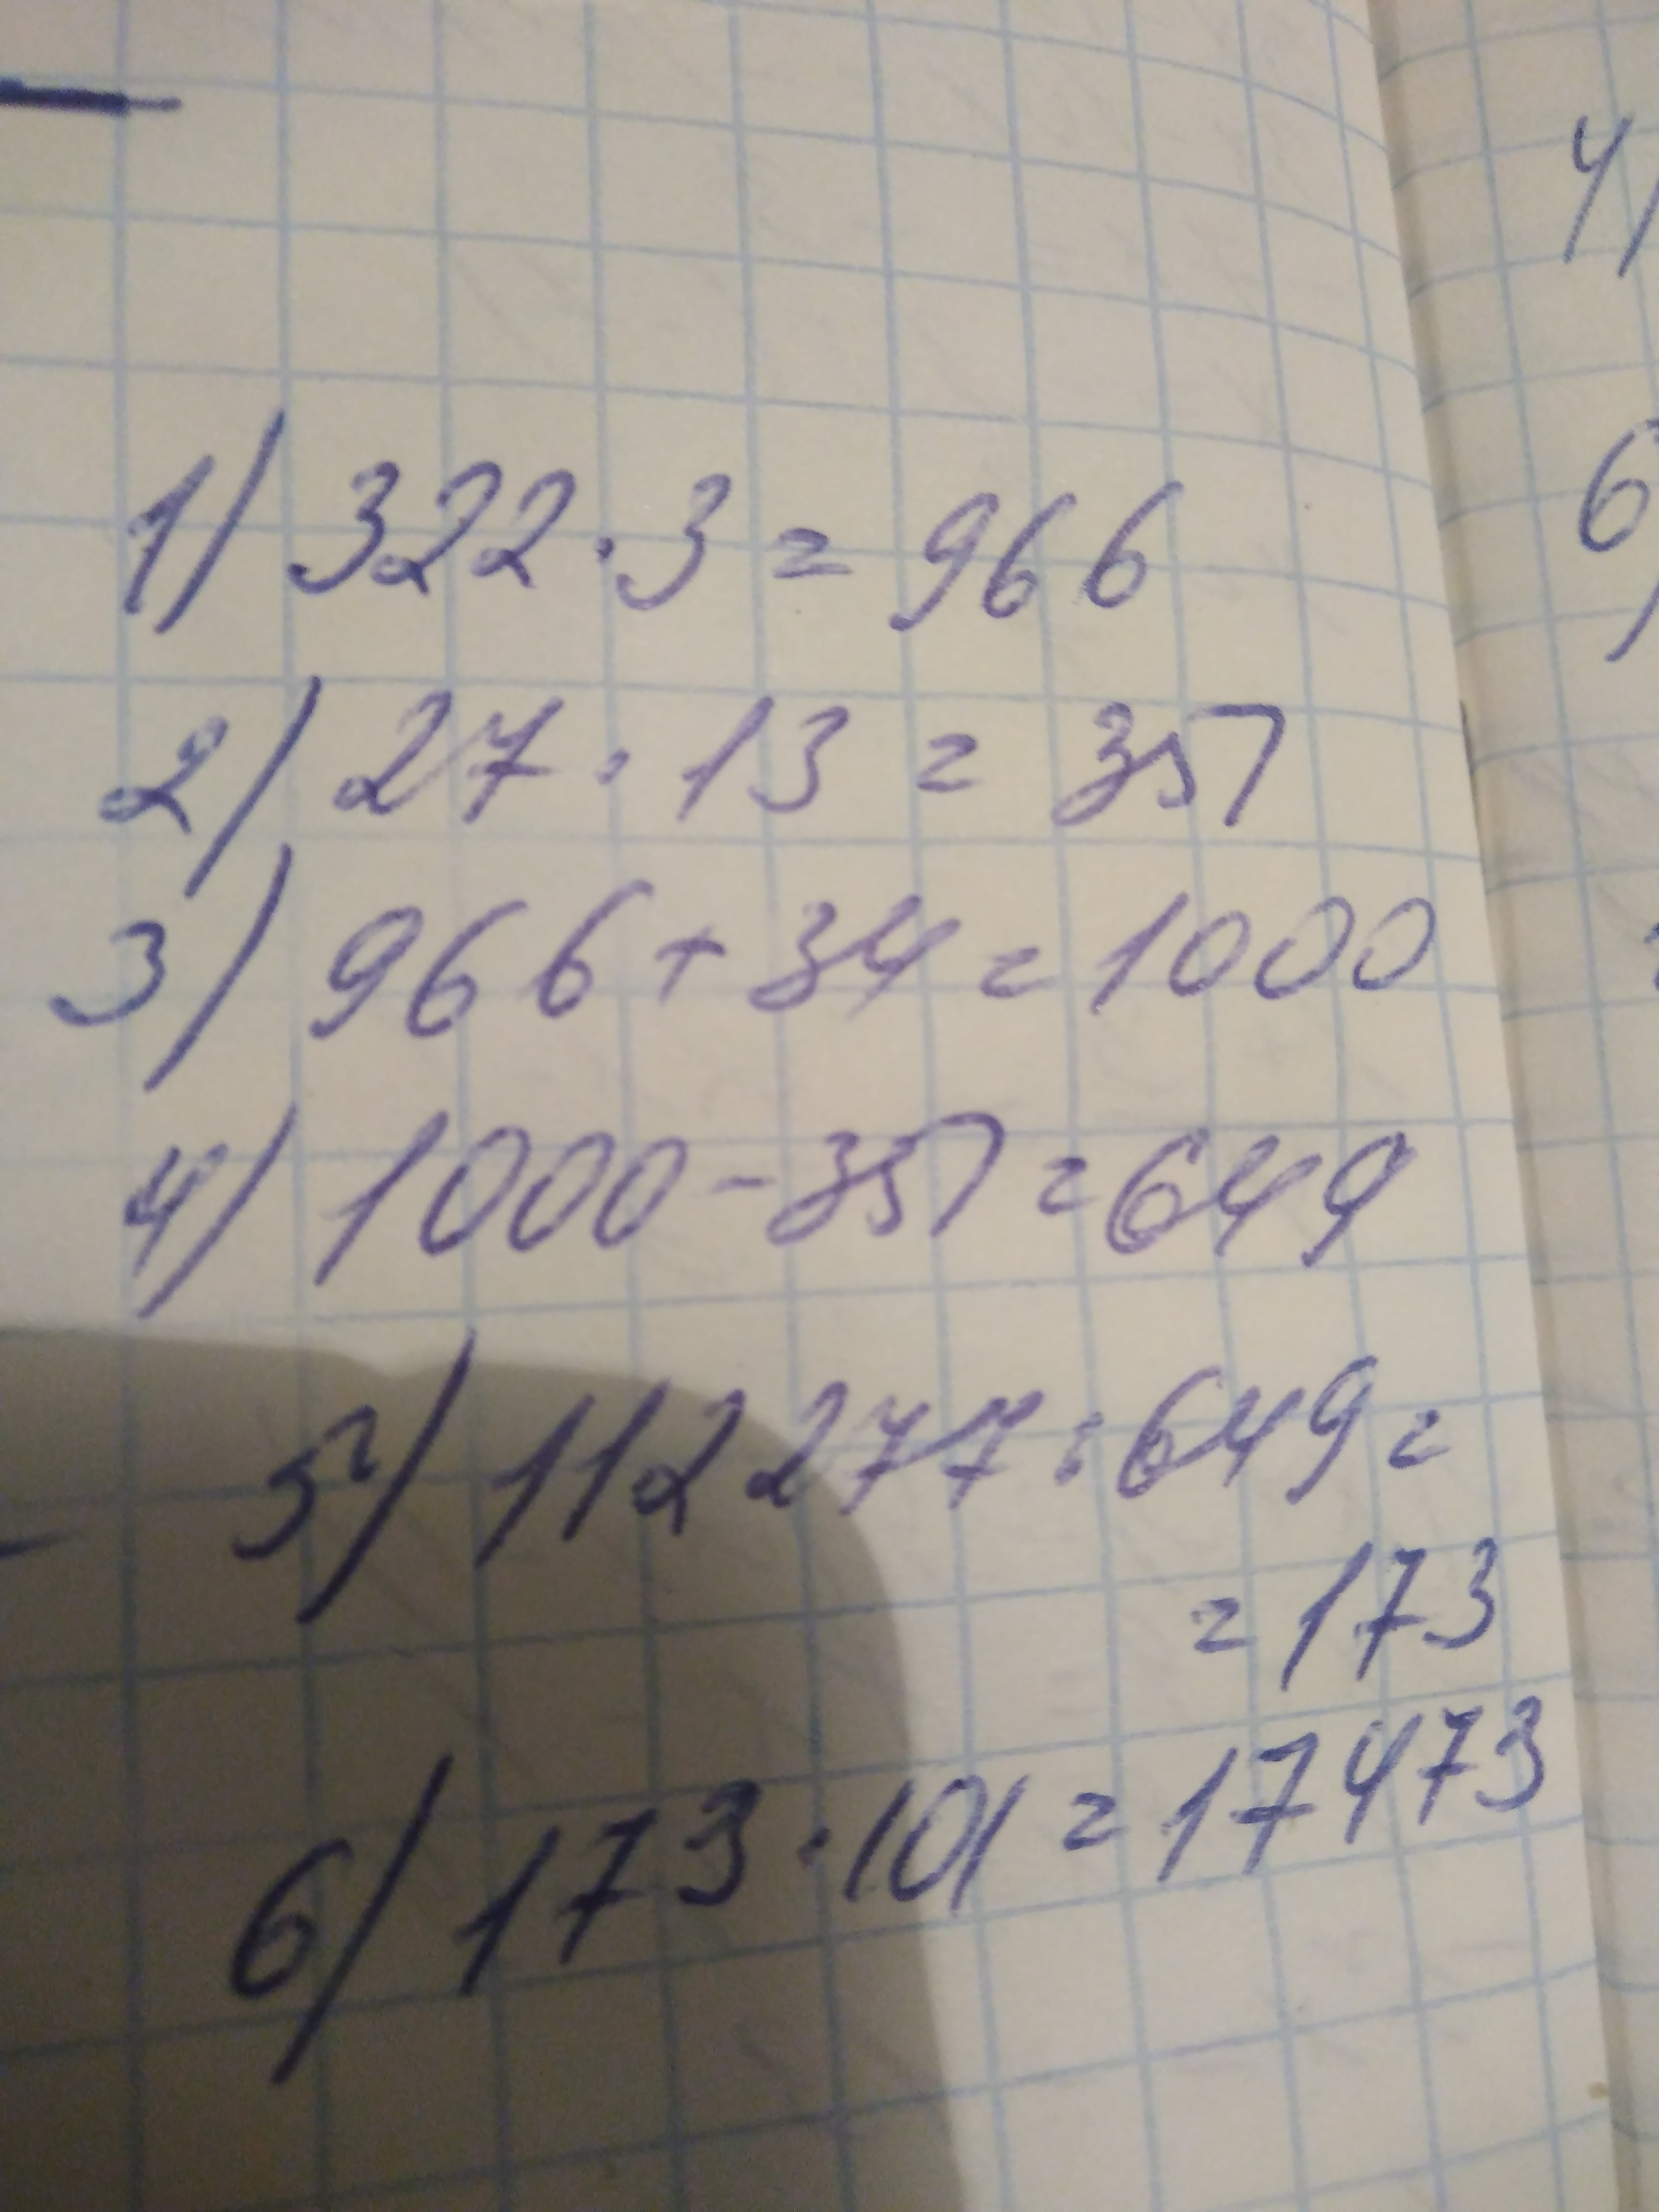 1) 322·3=966
2) 27·13=351
3) 966+34=1000
4) 1000-351=649
5) 112277:649=
=173
6) 173·101=17473
4)
6)